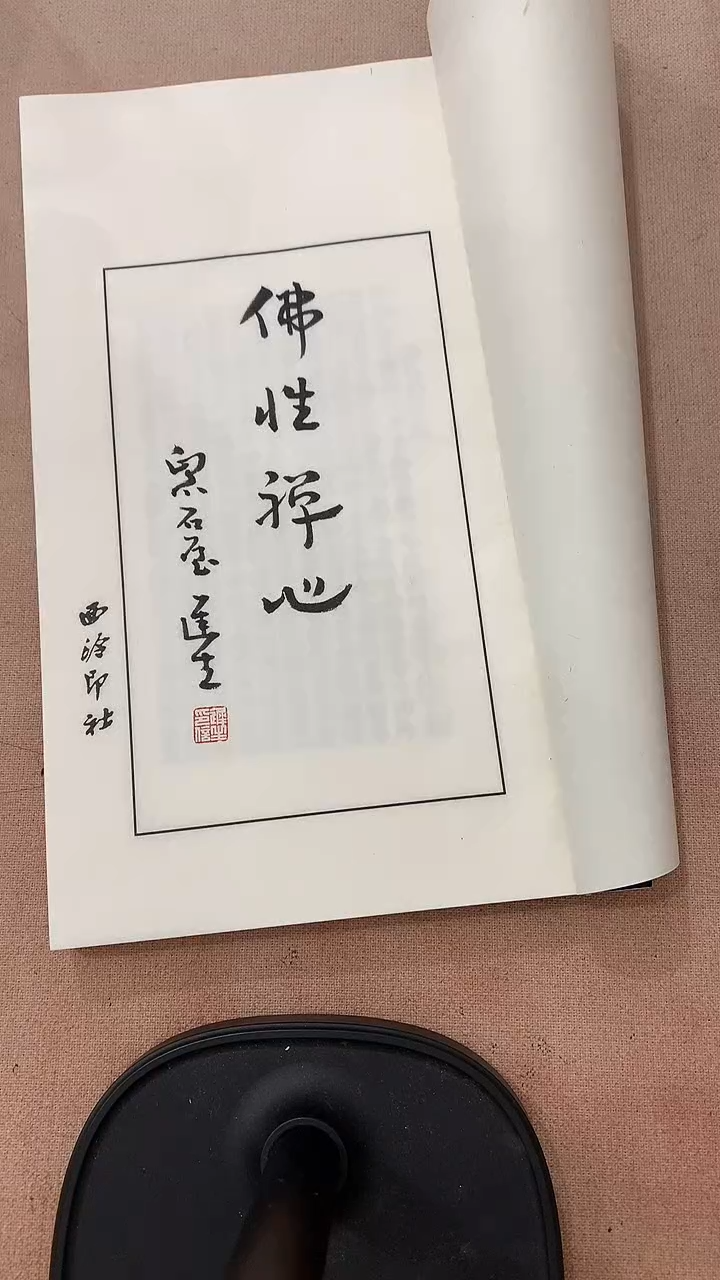 佛性禅心
石屋
西泠印社